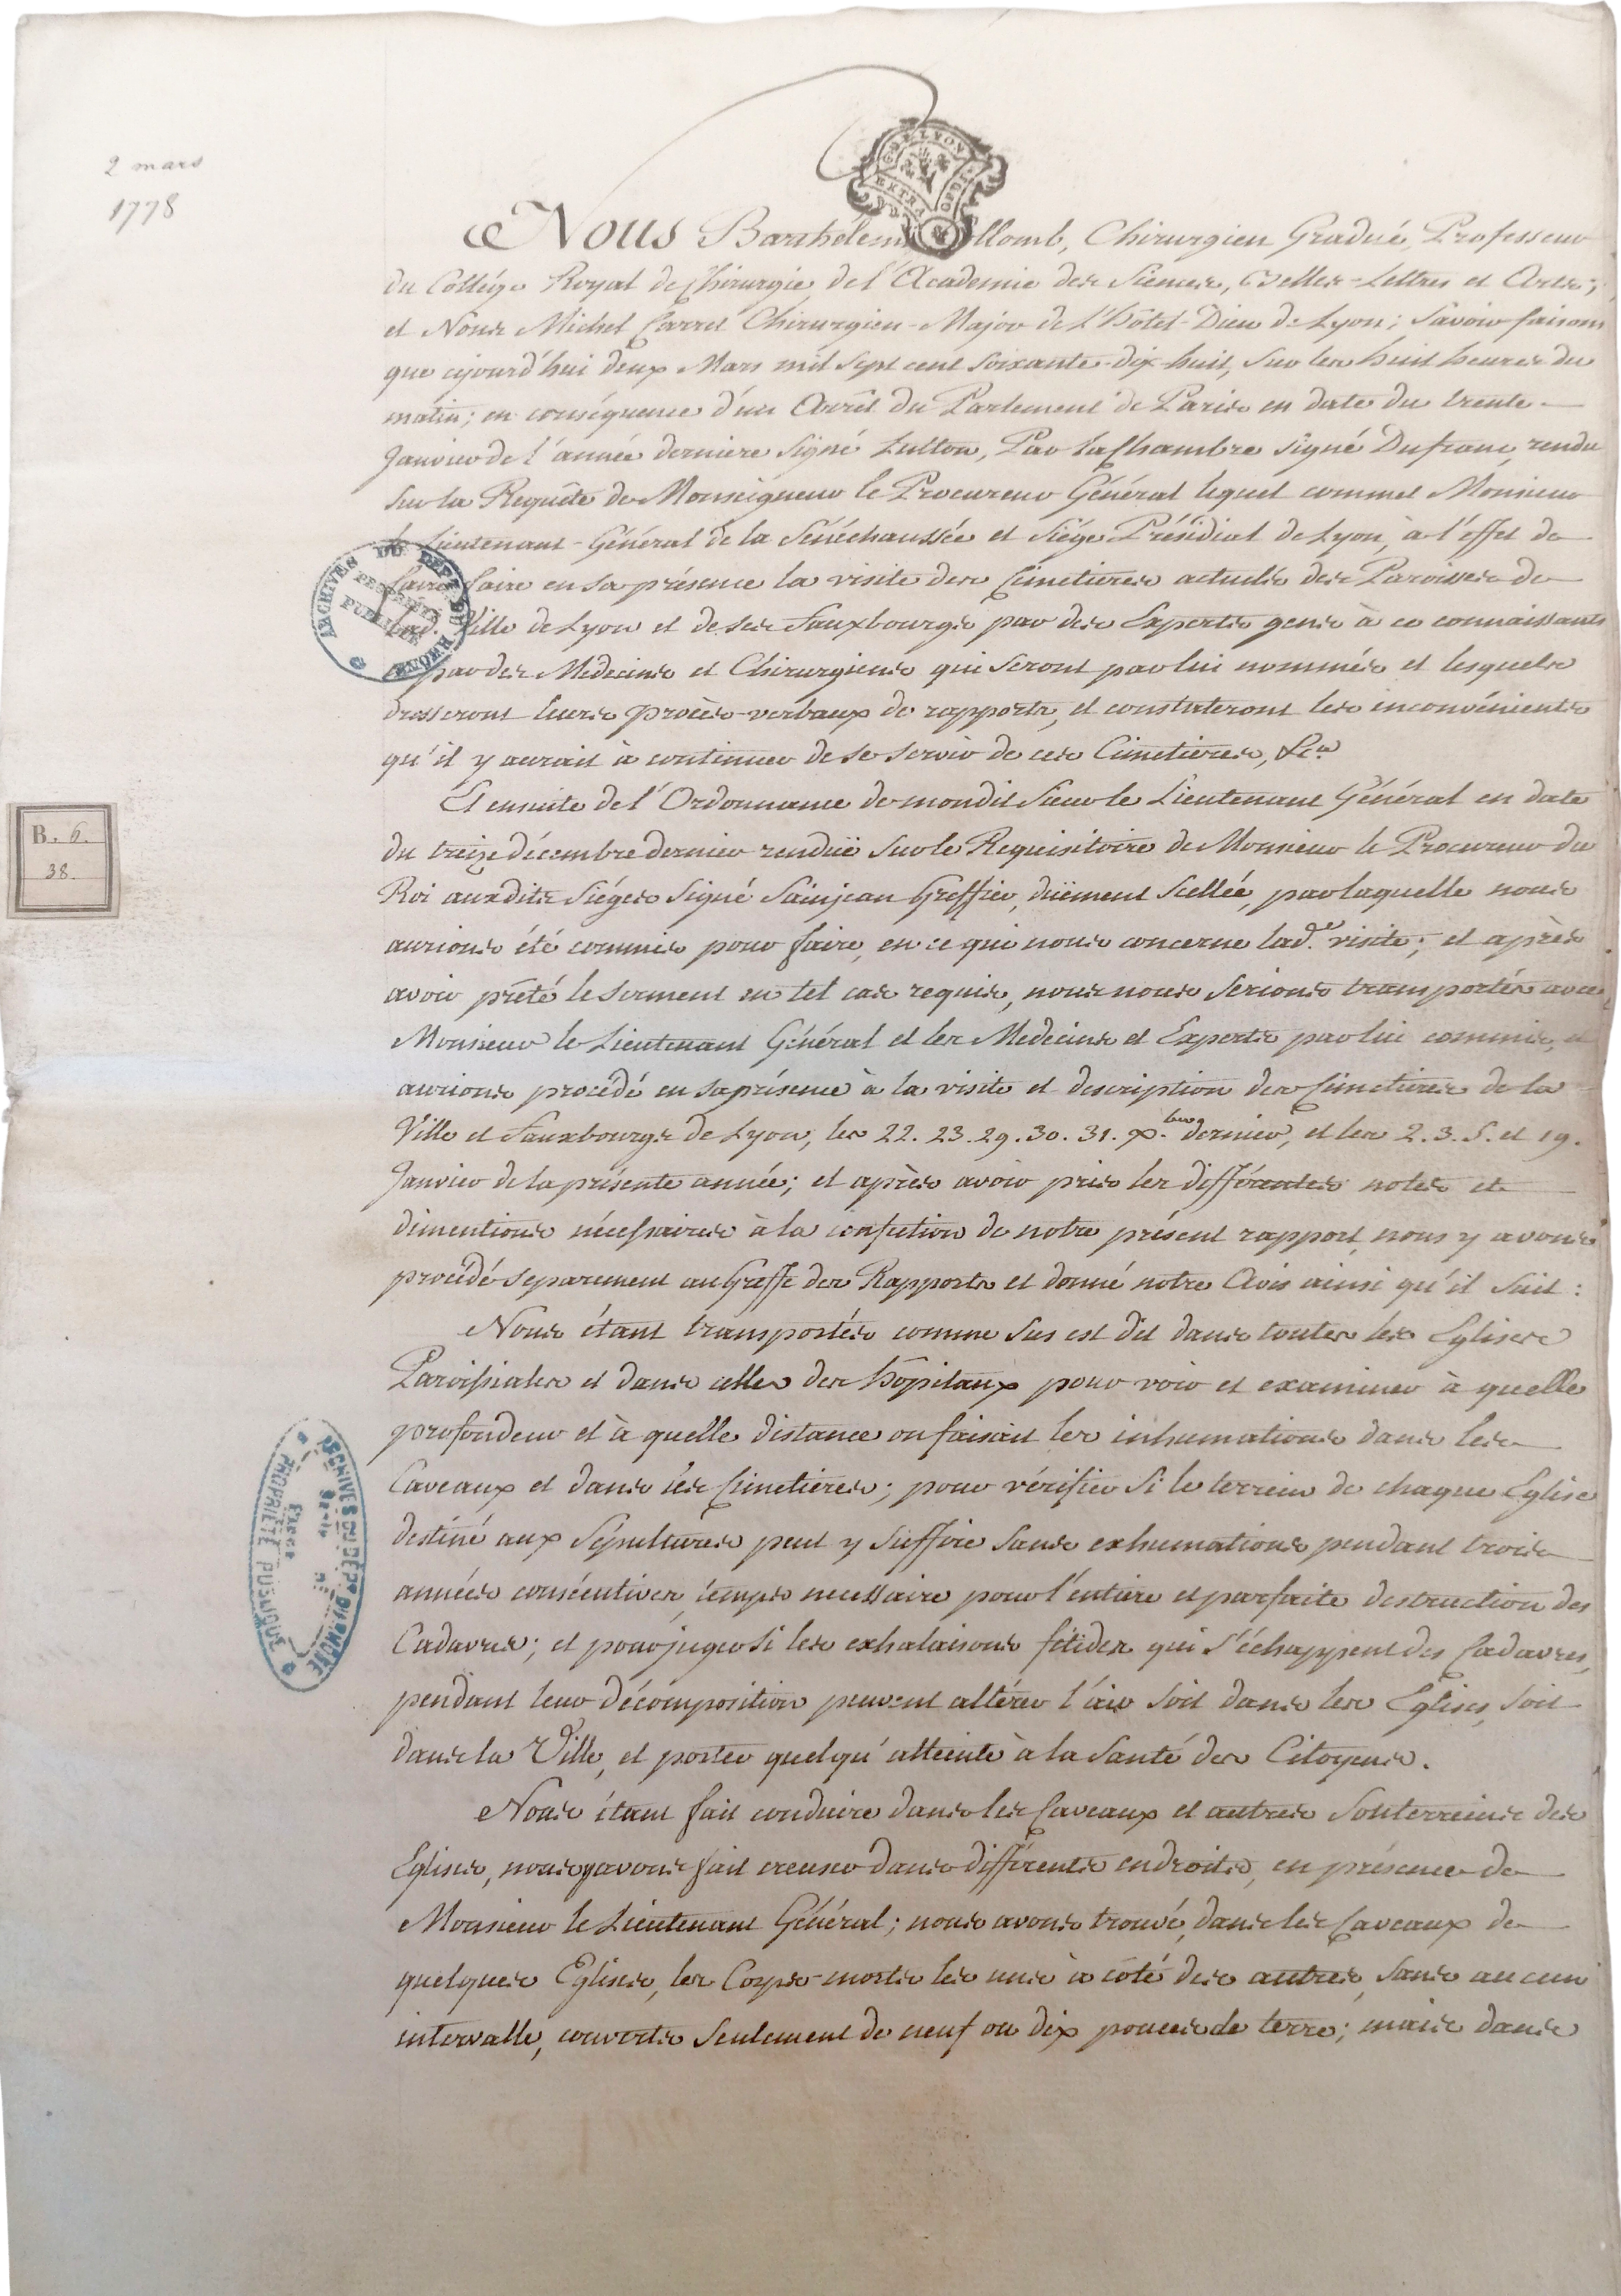 2 mars
1778
GEN. DE LYON
EXTRA
Nous Barthélemi Collomb, Chirurgien Gradué, Professeur
du Collége Royal de Chirurgie de l'Academie des Siences, Belles-Lettres et Arts;
et Nous Michel Carret Chirurgien-Major de l'hôtel-Dieu de Lyon; Savoir faisons
que cejourd'hui deux Mars mil sept cent soixante-dix-huit, sur les huit heures du
matin; en conséquence d'un Arrêt du Parlement de Paris en date du trente
Janvier de l'année derniere signé Lutton, Par la Chambre signé Dufranc, rendu
sur la Requête de Monseigneur le Procureur Général lequel commet Monsieur
le Lieutenant-Général de la Sénéchaussée et Siége Présidial de Lyon, à l'effet de
faire faire en sa présence la visite des Cimetieres actuels des Paroisses de
lad. Ville de Lyon et de ses Fauxbourgs par des Experts gens à ce connaissants
par des Medecins et Chirurgiens qui seront par lui nommés et lesquels
dresseront leurs procès-verbaux de rapports, et constateront les inconvénients
qu'il y aurait à continuer de se servir de ces Cimetieres, &c.a
Et ensuite de l'Ordonnance de mondit Sieur le Lieutenant Général en date
du treize décembre dernier renduë sur le Requisitoire de Monsieur le Procureur du
Roi auxdits Siéges signé Sainjean Greffier, düement Scellée, par laquelle nous
aurions été commis pour faire, en ce qui nous concerne lad.e visite; et après
avoir prêté le serment en tel cas requis, nous nous serions transportés avec
Monsieur le Lieutenant Général et les Medecins et Experts par lui commis, et
aurions procédé en sa présence à la visite et description des Cimetieres de la
Ville et Fauxbourgs de Lyon, les 22. 23. 29. 30. 31. x.bre dernier, et les 2. 3. 5. et 19.
Janvier de la présente année; et après avoir pris les différentes notes et
dimentions nécessaires à la confection de notre présent rapport, nous y avons
procédé séparement au Greffe des Rapports et donné notre Avis ainsi qu'il suit:
Nous étant transportés comme sus est dit dans toutes les Eglises
Paroissiales et dans celles des hôpitaux pour voir et examiner à quelle
profondeur et à quelle distance on faisait les inhumations dans les
Caveaux et dans les Cimetieres; pour vérifier si le terrein de chaque Eglise
destiné aux Sépultures peut y suffire sans exhumations pendant trois
années consécutives, temps necessaire pour l'entiere et parfaite destruction des
Cadavres; et pour juger si les exhalaisons fétides qui s'échappent des Cadavres,
pendant leur décomposition peuvent altérer l'air soit dans les Eglises, soit
dans la Ville, et porter quelqu'atteinte à la Santé des Citoyens.
Nous étant fait conduire dans les Caveaux et autres Souterreins des
Eglises, nous y avons fait creuser dans différents endroits, en présence de
Monsieur le Lieutenant Général; nous avons trouvé, dans les Caveaux de
quelques Eglises, les Corps-morts les uns à côté des autres, sans aucun
intervalle, couverts seulement de neuf ou dix pouces de terre; mais dans
ARCHIVES DU DEPT DU RHONE
PROPRIETE PUBLIQUE
B. 6.
38.
ARCHIVES DU DEPT DU RHONE
PROPRIÉTÉ PUBLIQUE